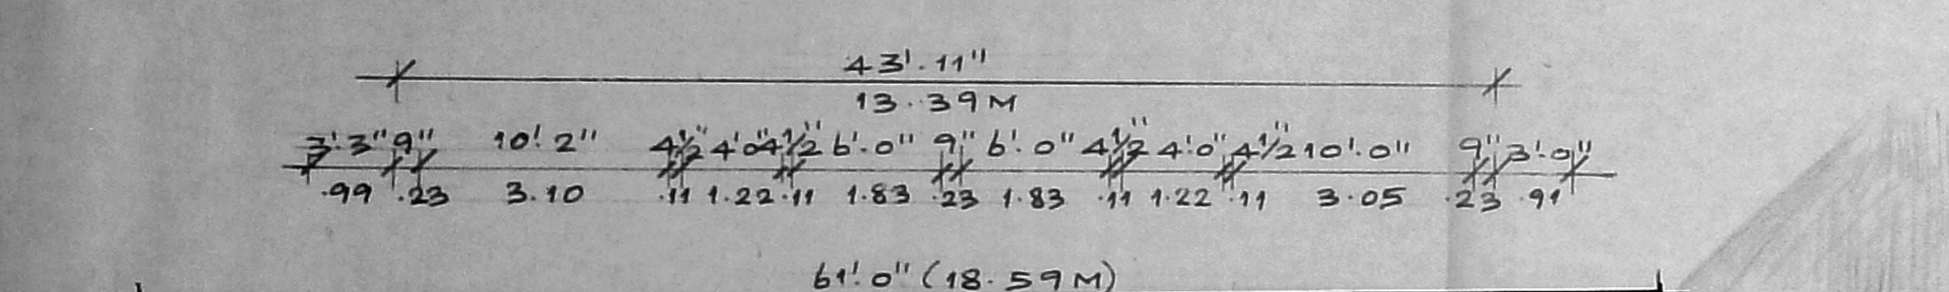 43'.11"
13.39M
3'.3" 9" 10'.2" 4½" 4'.0" 4½" 6'.0" 9" 6'.0" 4½" 4'.0" 4½" 10'.0" 9" 3'.0"
.99 .23 3.10 .11 1.22 .11 1.83 .23 1.83 .11 1.22 .11 3.05 .23 .91
61'.0" (18.59M)